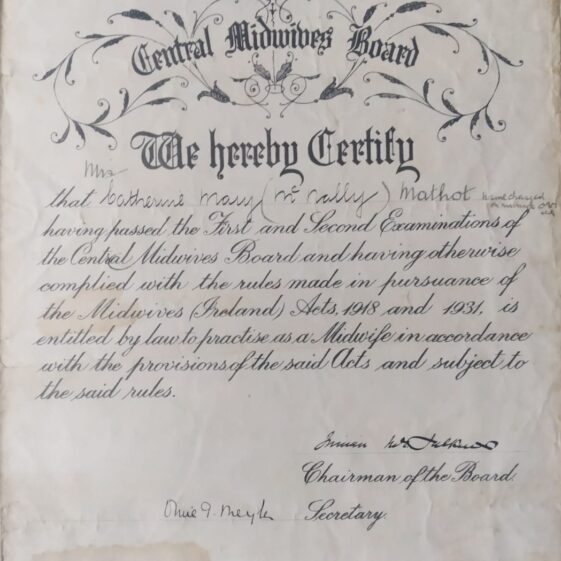 Central Midwives Board
We hereby Certify
Mrs
that Catherine Mary (Mc Nally) Mathot name changed on marriage
having passed the First and Second Examinations of
the Central Midwives Board and having otherwise
complied with the rules made in pursuance of
the Midwives (Ireland) Acts, 1918 and 1931, is
entitled by law to practise as a Midwife in accordance
with the provisions of the said Acts and subject to
the said rules.
Chairman of the Board.
Secretary.